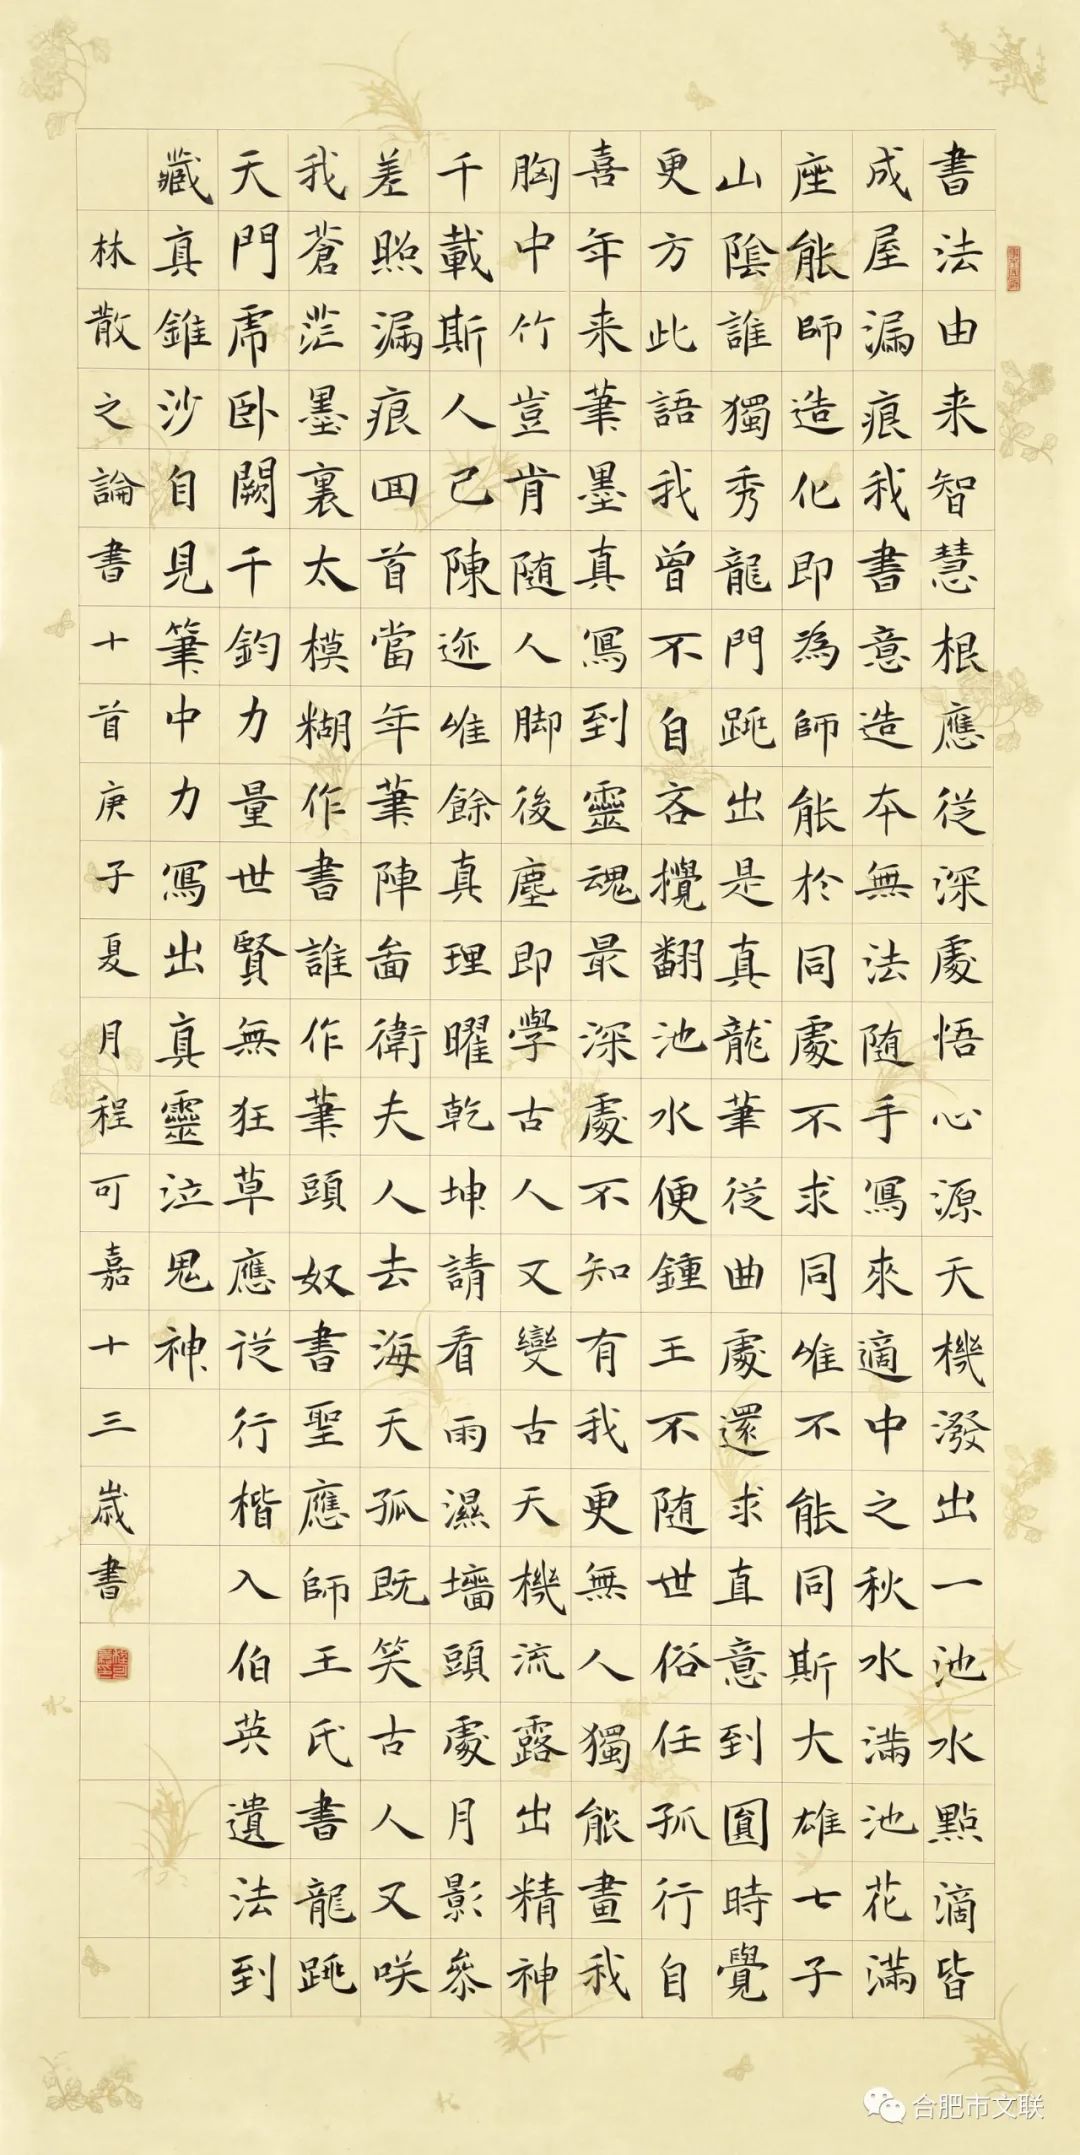 書法由来智慧根應從深處悟心源天機潑出一池水點滴皆
成屋漏痕我書意造本無法随手寫來適中之秋水滿池花滿
座能師造化即為師能於同處不求同唯不能同斯大雄七子
山陰誰獨秀龍門跳出是真龍筆從曲處還求直意到圓時覺
更方此語我曾不自吝攪翻池水便鍾王不随世俗任孤行自
喜年来筆墨真寫到靈魂最深處不知有我更無人獨能畫我
胸中竹豈肯随人脚後塵即學古人又變古天機流露出精神
千載斯人已陳迹唯餘真理曜乾坤請看雨濕墻頭處月影參
差照漏痕回首當年筆陣啚衛夫人去海天孤既笑古人又咲
我蒼茫墨裏太模糊作書誰作筆頭奴書聖應師王氏書龍跳
天門虎卧闕千鈞力量世賢無狂草應從行楷入伯英遺法到
藏真錐沙自見筆中力寫出真靈泣鬼神
林散之論書十首庚子夏月程可嘉十三歲書
合肥市文联